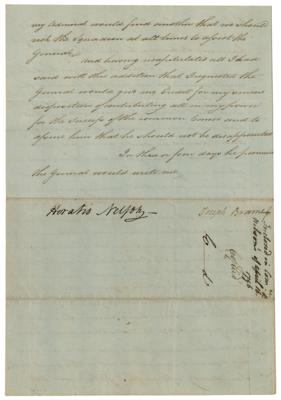 my Admiral would find another that we should
risk the squadron at all times to assist the
General.
And having recapitulated all I had
said with this addition that I requested the
General would give me Credit for my sincere
disposition of contributing all in my power
for the Success of the Common Cause and to
assure him that he should not be disappointed
In three or four days he promised
the General would write me
Horatio Nelson
Joseph Brame
Inclosed in
of April
1796